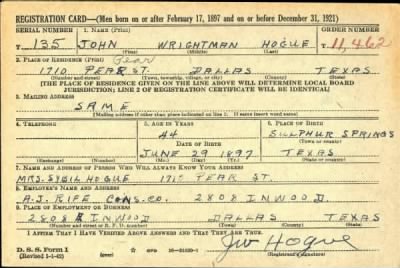 REGISTRATION CARD—(Men born on or after February 17, 1897 and on or before December 31, 1921)
SERIAL NUMBER 1. NAME (Print) ORDER NUMBER
T 135 JOHN WRIGHTMAN HOGUE T 11,462
(First) (Middle) (Last)
2. PLACE OF RESIDENCE (Print) Pear
1710 PEAR ST. DALLAS TEXAS
(Number and street) (Town, township, village, or city) (County) (State)
[THE PLACE OF RESIDENCE GIVEN ON THE LINE ABOVE WILL DETERMINE LOCAL BOARD
JURISDICTION; LINE 2 OF REGISTRATION CERTIFICATE WILL BE IDENTICAL]
3. MAILING ADDRESS
SAME
[Mailing address if other than place indicated on line 2. If same insert word same]
4. TELEPHONE 5. AGE IN YEARS 6. PLACE OF BIRTH
44 SULPHUR SPRINGS
DATE OF BIRTH (Town or county)
JUNE 29 1897 TEXAS
(Exchange) (Number) (Mo.) (Day) (Yr.) (State or country)
7. NAME AND ADDRESS OF PERSON WHO WILL ALWAYS KNOW YOUR ADDRESS
MRS. SYBIL HOGUE 1710 PEAR ST.
8. EMPLOYER'S NAME AND ADDRESS
A.J. RIFE CONS. CO. 2808 INWOOD.
9. PLACE OF EMPLOYMENT OR BUSINESS
2808 INWOOD DALLAS TEXAS
(Number and street or R. F. D. number) (Town) (County) (State)
I AFFIRM THAT I HAVE VERIFIED ABOVE ANSWERS AND THAT THEY ARE TRUE.
D. S. S. Form 1 JW Hogue
(Revised 1-1-42) (over) (Registrant's signature)